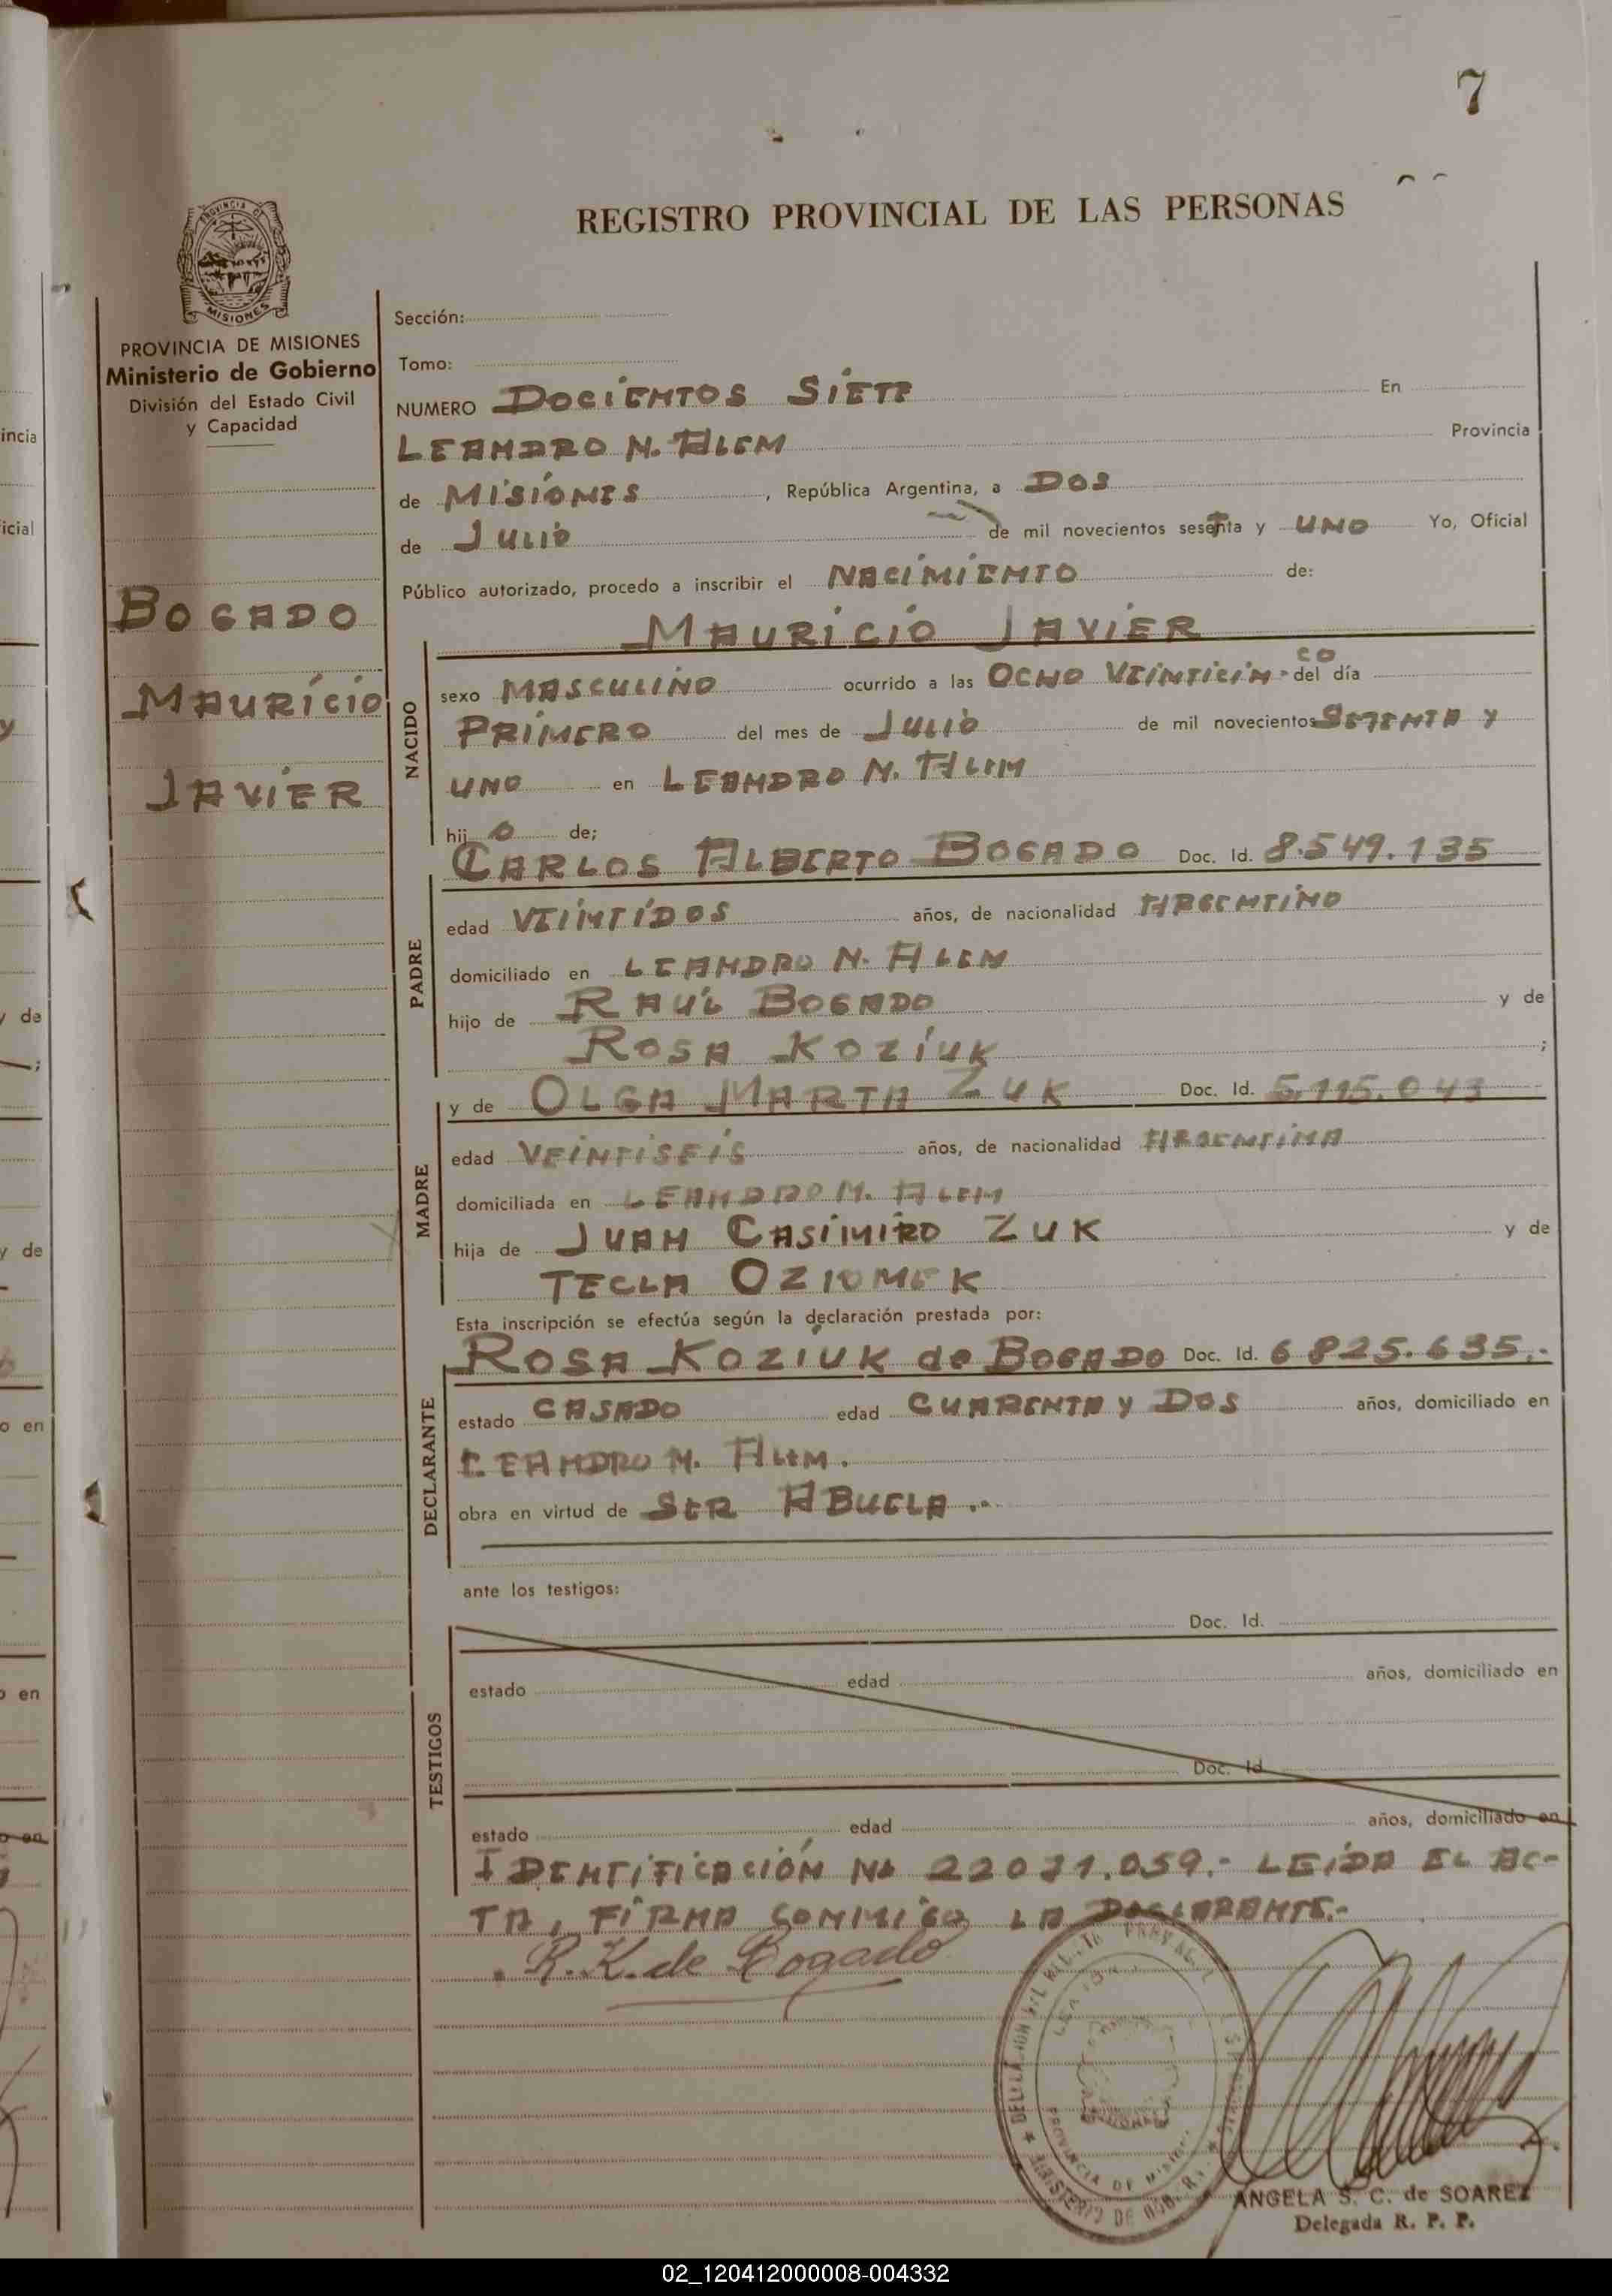 7
REGISTRO PROVINCIAL DE LAS PERSONAS
PROVINCIA DE
MISIONES
PROVINCIA DE MISIONES
Ministerio de Gobierno
División del Estado Civil
y Capacidad
BOGADO
MAURICIO
JAVIER
Sección:
Tomo:
NUMERO DOCIENTOS SIETE En
LEANDRO N. ALEM Provincia
de MISIONES, República Argentina, a DOS
de JULIO de mil novecientos setenta y UNO Yo, Oficial
Público autorizado, procedo a inscribir el NACIMIENTO de:
MAURICIO JAVIER
NACIDO
sexo MASCULINO ocurrido a las OCHO VEINTICINCO del día
PRIMERO del mes de JULIO de mil novecientos SETENTA Y
UNO en LEANDRO N. ALEM
hijo de;
CARLOS ALBERTO BOGADO Doc. Id. 8.549.135
PADRE
edad VEINTIDOS años, de nacionalidad ARGENTINO
domiciliado en LEANDRO N. ALEM
hijo de RAÚL BOGADO y de
ROSA KOZIUK ;
y de OLGA MARTA ZUK Doc. Id. 5.115.043
MADRE
edad VEINTISEIS años, de nacionalidad ARGENTINA
domiciliada en LEANDRO N. ALEM
hija de JUAN CASIMIRO ZUK y de
TECLA OZIOMEK
Esta inscripción se efectúa según la declaración prestada por:
ROSA KOZIUK de BOGADO Doc. Id. 6825.635.-
DECLARANTE
estado CASADO edad CUARENTA Y DOS años, domiciliado en
LEANDRO N. ALEM.
obra en virtud de SER ABUELA.-
ante los testigos:
Doc. Id.
TESTIGOS
estado edad años, domiciliado en
Doc. Id.
estado edad años, domiciliado en
IDENTIFICACIÓN No 22021.059.- LEIDA EL AC-
TA, FIRMA CONMIGO LA DECLARANTE.-
R. K. de Bogado
PROVINCIA DE
MINISTERIO DE GOB.
ANGELA S. C. de SOAREZ
Delegada R. P. P.
incia
icial
y
y de
;
y de
o en
o en
o en
02_120412000008-004332